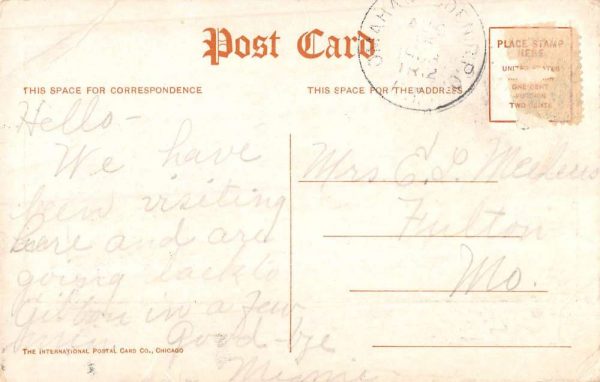 Post Card
OMAHA & DENVER R.P.O.
TR. 2
PLACE STAMP
HERE
UNITED STATES
ONE CENT
TWO CENTS
THIS SPACE FOR CORRESPONDENCE
THIS SPACE FOR THE ADDRESS
Hello-
We have
been visiting
here and are
going back to
in a few
Good-bye
Minnie
Mrs E. L.
Fulton
Mo.
THE INTERNATIONAL POSTAL CARD CO., CHICAGO